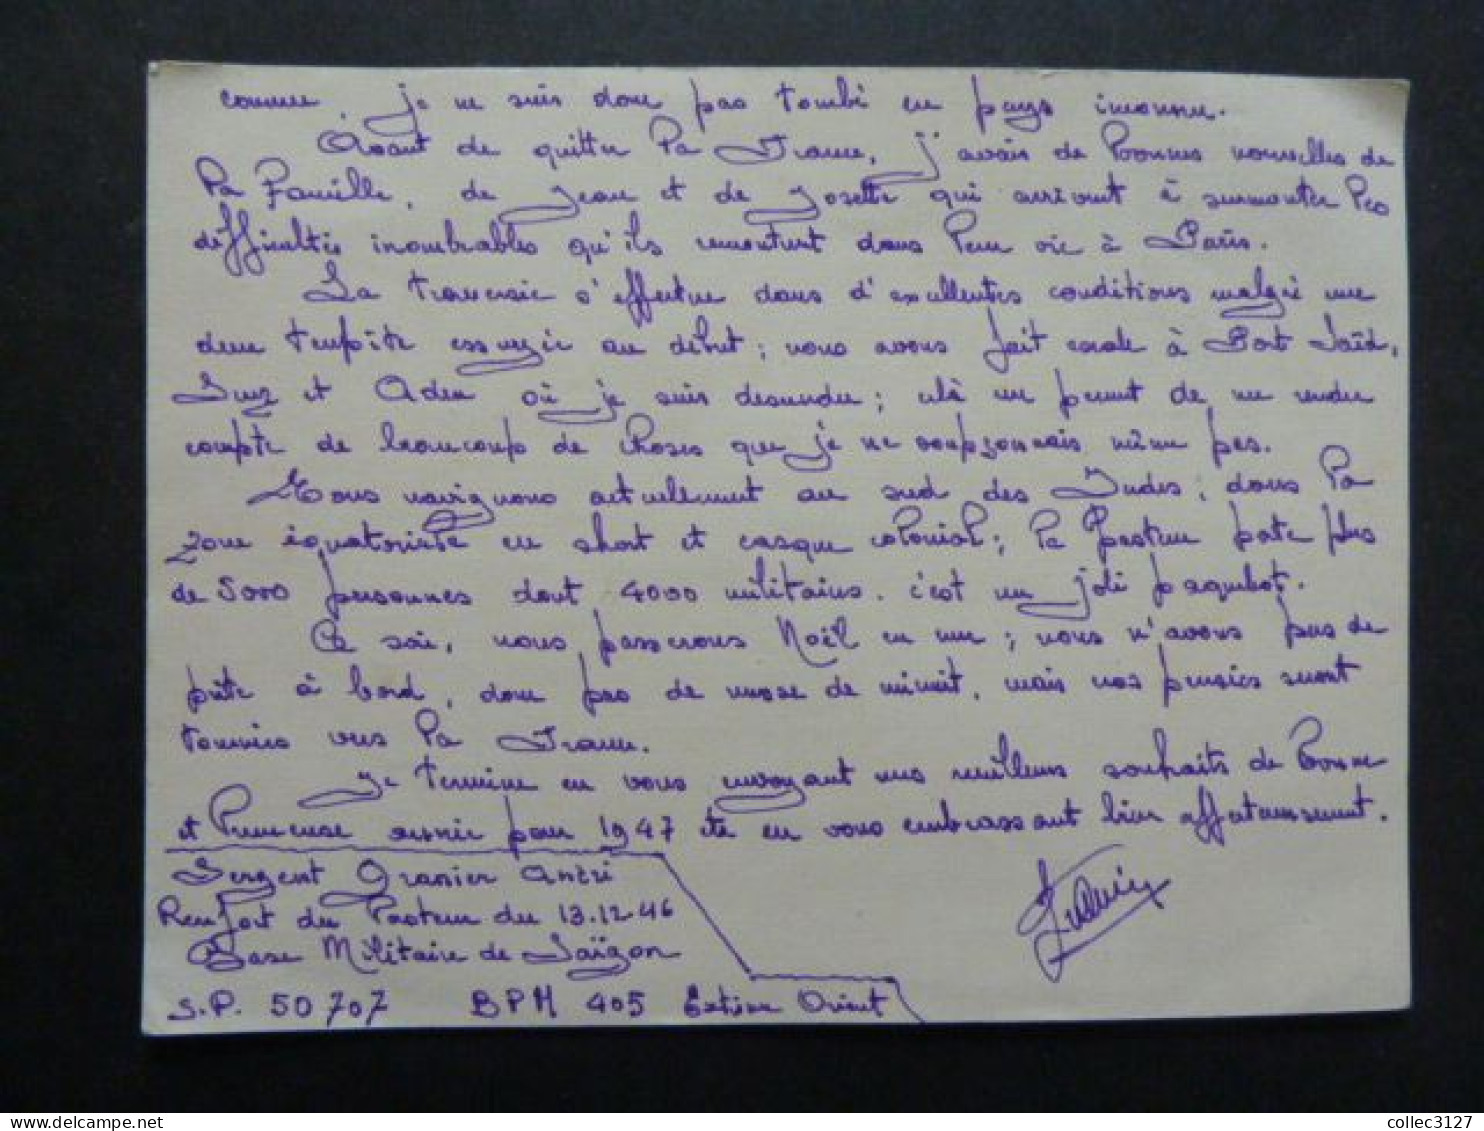 connu. je ne suis donc pas tombé en pays inconnu.
Avant de quitter la France, j'avais de bonnes nouvelles de
la Famille, de Jean et de Josette qui arrivent à surmonter les
difficultés inombrables qu'ils rencontrent dans leur vie à Paris.
La traversée s'effectue dans d'excellentes conditions malgré une
dure tempête essuyée au début; nous avons fait escale à Port Saïd,
Suez et Aden où je suis descendu; celà m'a permit de me rendre
compte de beaucoup de choses que je ne soupçonnais même pas.
Nous navigons actuellement au sud des Indes; dans la
zone équatoriale en short et casque colonial; le Pasteur porte plus
de 5000 personnes dont 4000 militaires. c'est un joli paquebot.
Ce soir, nous passerons Noël en mer; nous n'avons pas de
prêtre à bord, donc pas de messe de minuit, mais nos pensées seront
tournées vers la France.
Je termine en vous envoyant mes meilleurs souhaits de bonne
et heureuse année pour 1947 et en vous embrassant bien affectueusement.
Sergent Granier André
Renfort du Pasteur du 13.12.46
Base Militaire de Saïgon
S.P. 50 707 BPM 405 Extrême Orient
collec3127